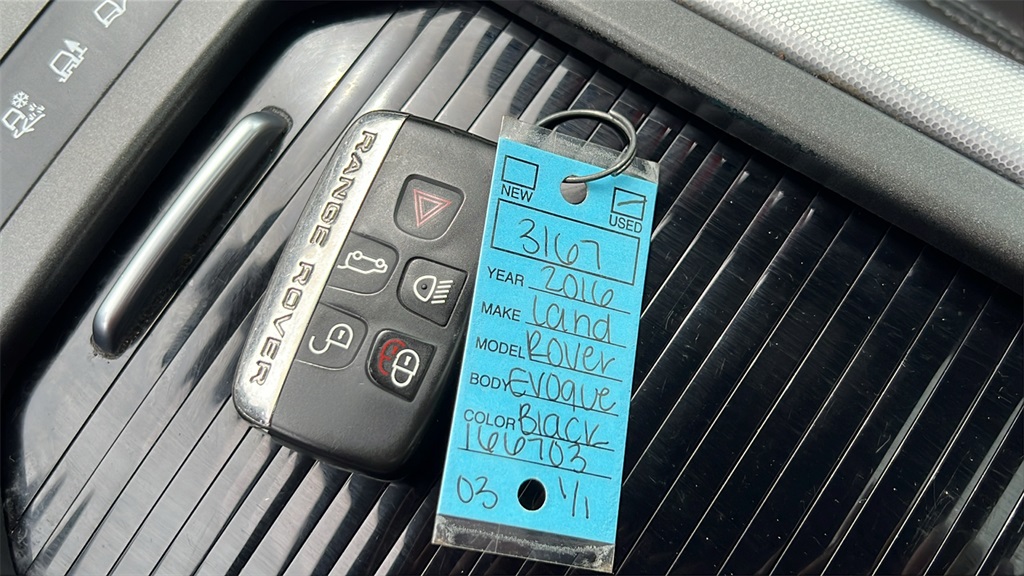 RANGE ROVER
NEW
USED
3167
YEAR 2016
MAKE Land
MODEL Rover
BODY Evoque
COLOR Black
166703
03 1/1